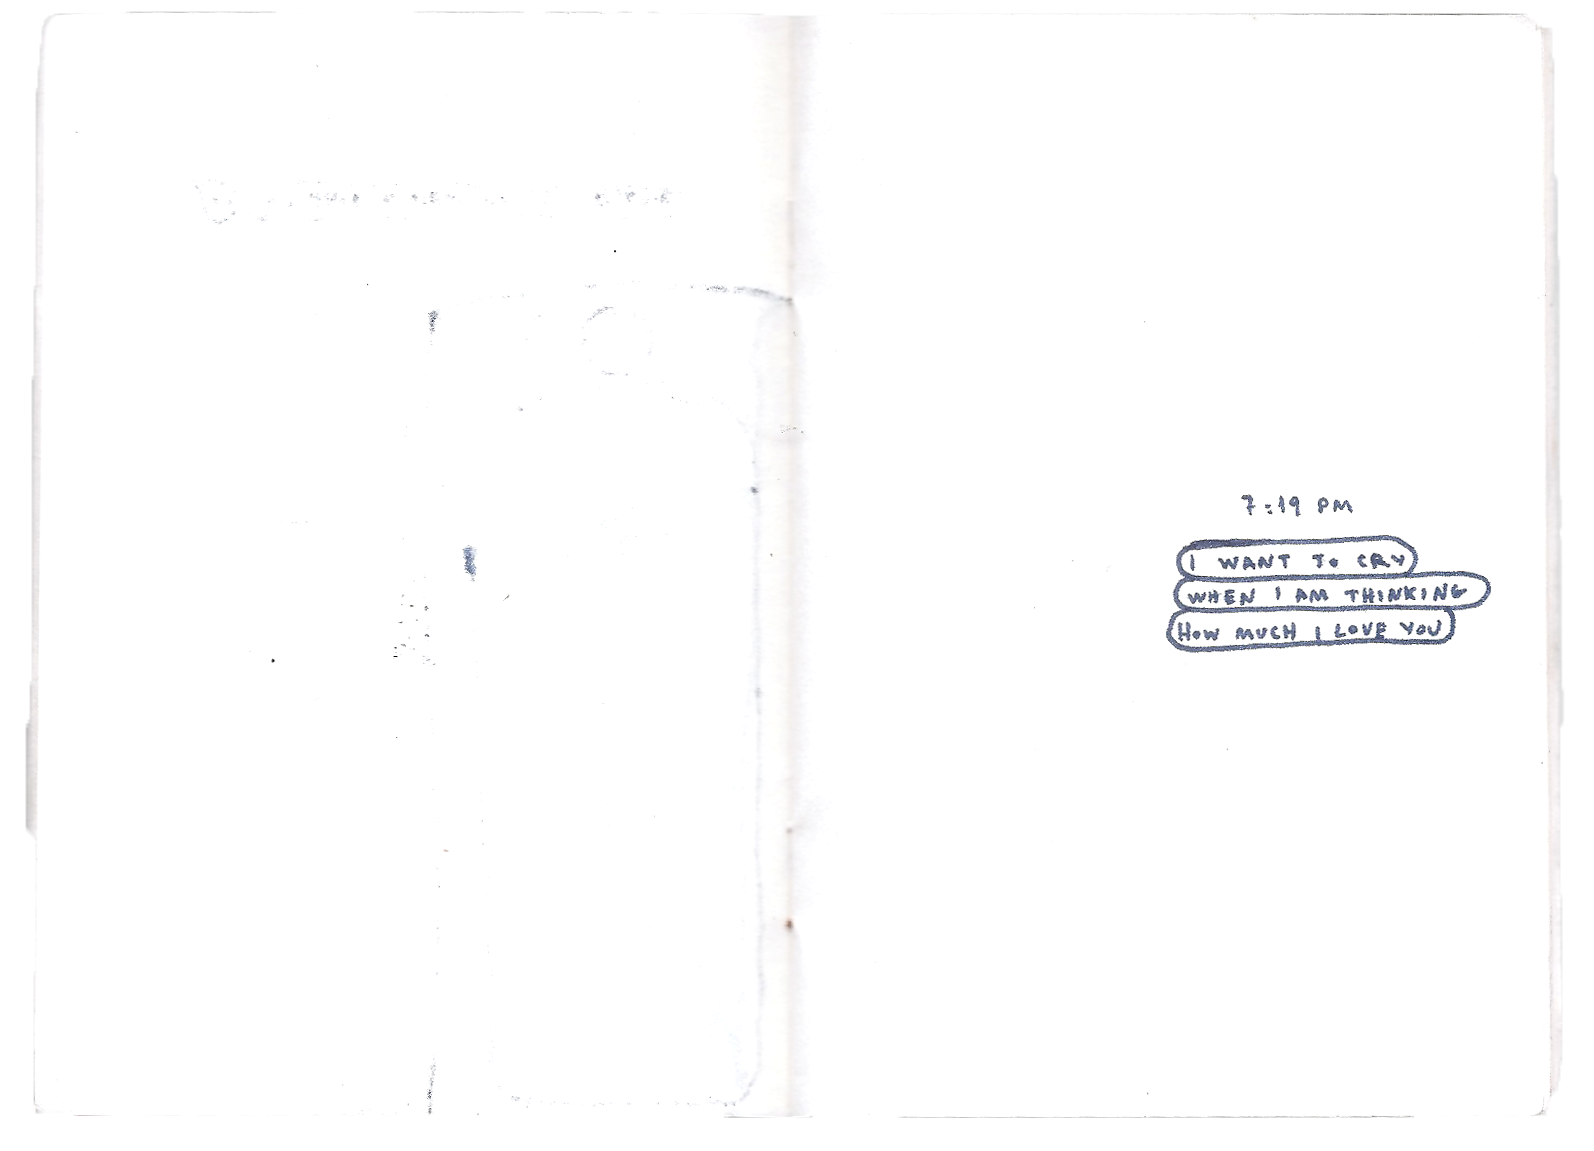 7:19 PM
I WANT TO CRY
WHEN I AM THINKING
HOW MUCH I LOVE YOU